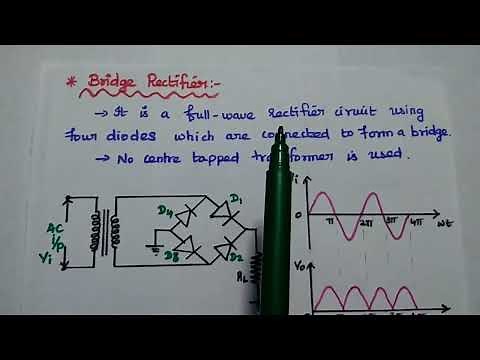 * Bridge Rectifier:-
→ It is a full-wave rectifier circuit using
four diodes which are connected to form a bridge.
→ No centre tapped transformer is used.
AC
i/p
Vi
D4
D1
D3
D2
RL
i
0
π
2π
3π
4π
wt
V0
0